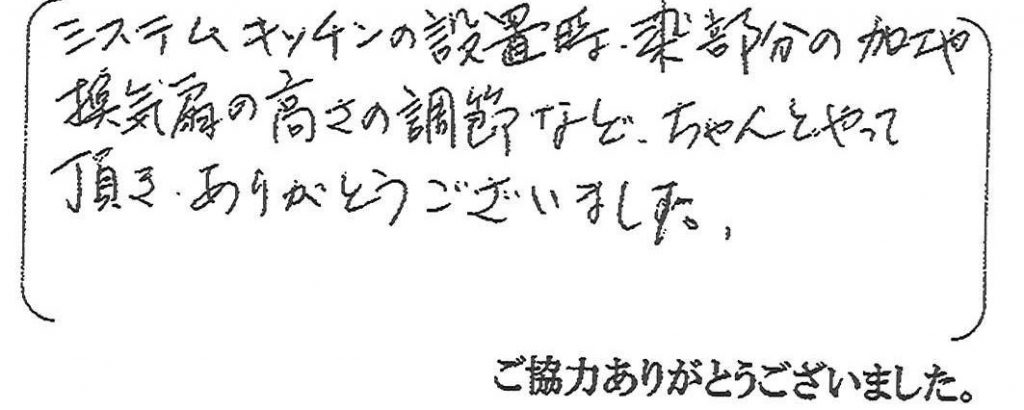 システムキッチンの設置時、梁部分の加工や
換気扇の高さの調節など、ちゃんとやって
頂き、ありがとうございました。
ご協力ありがとうございました。